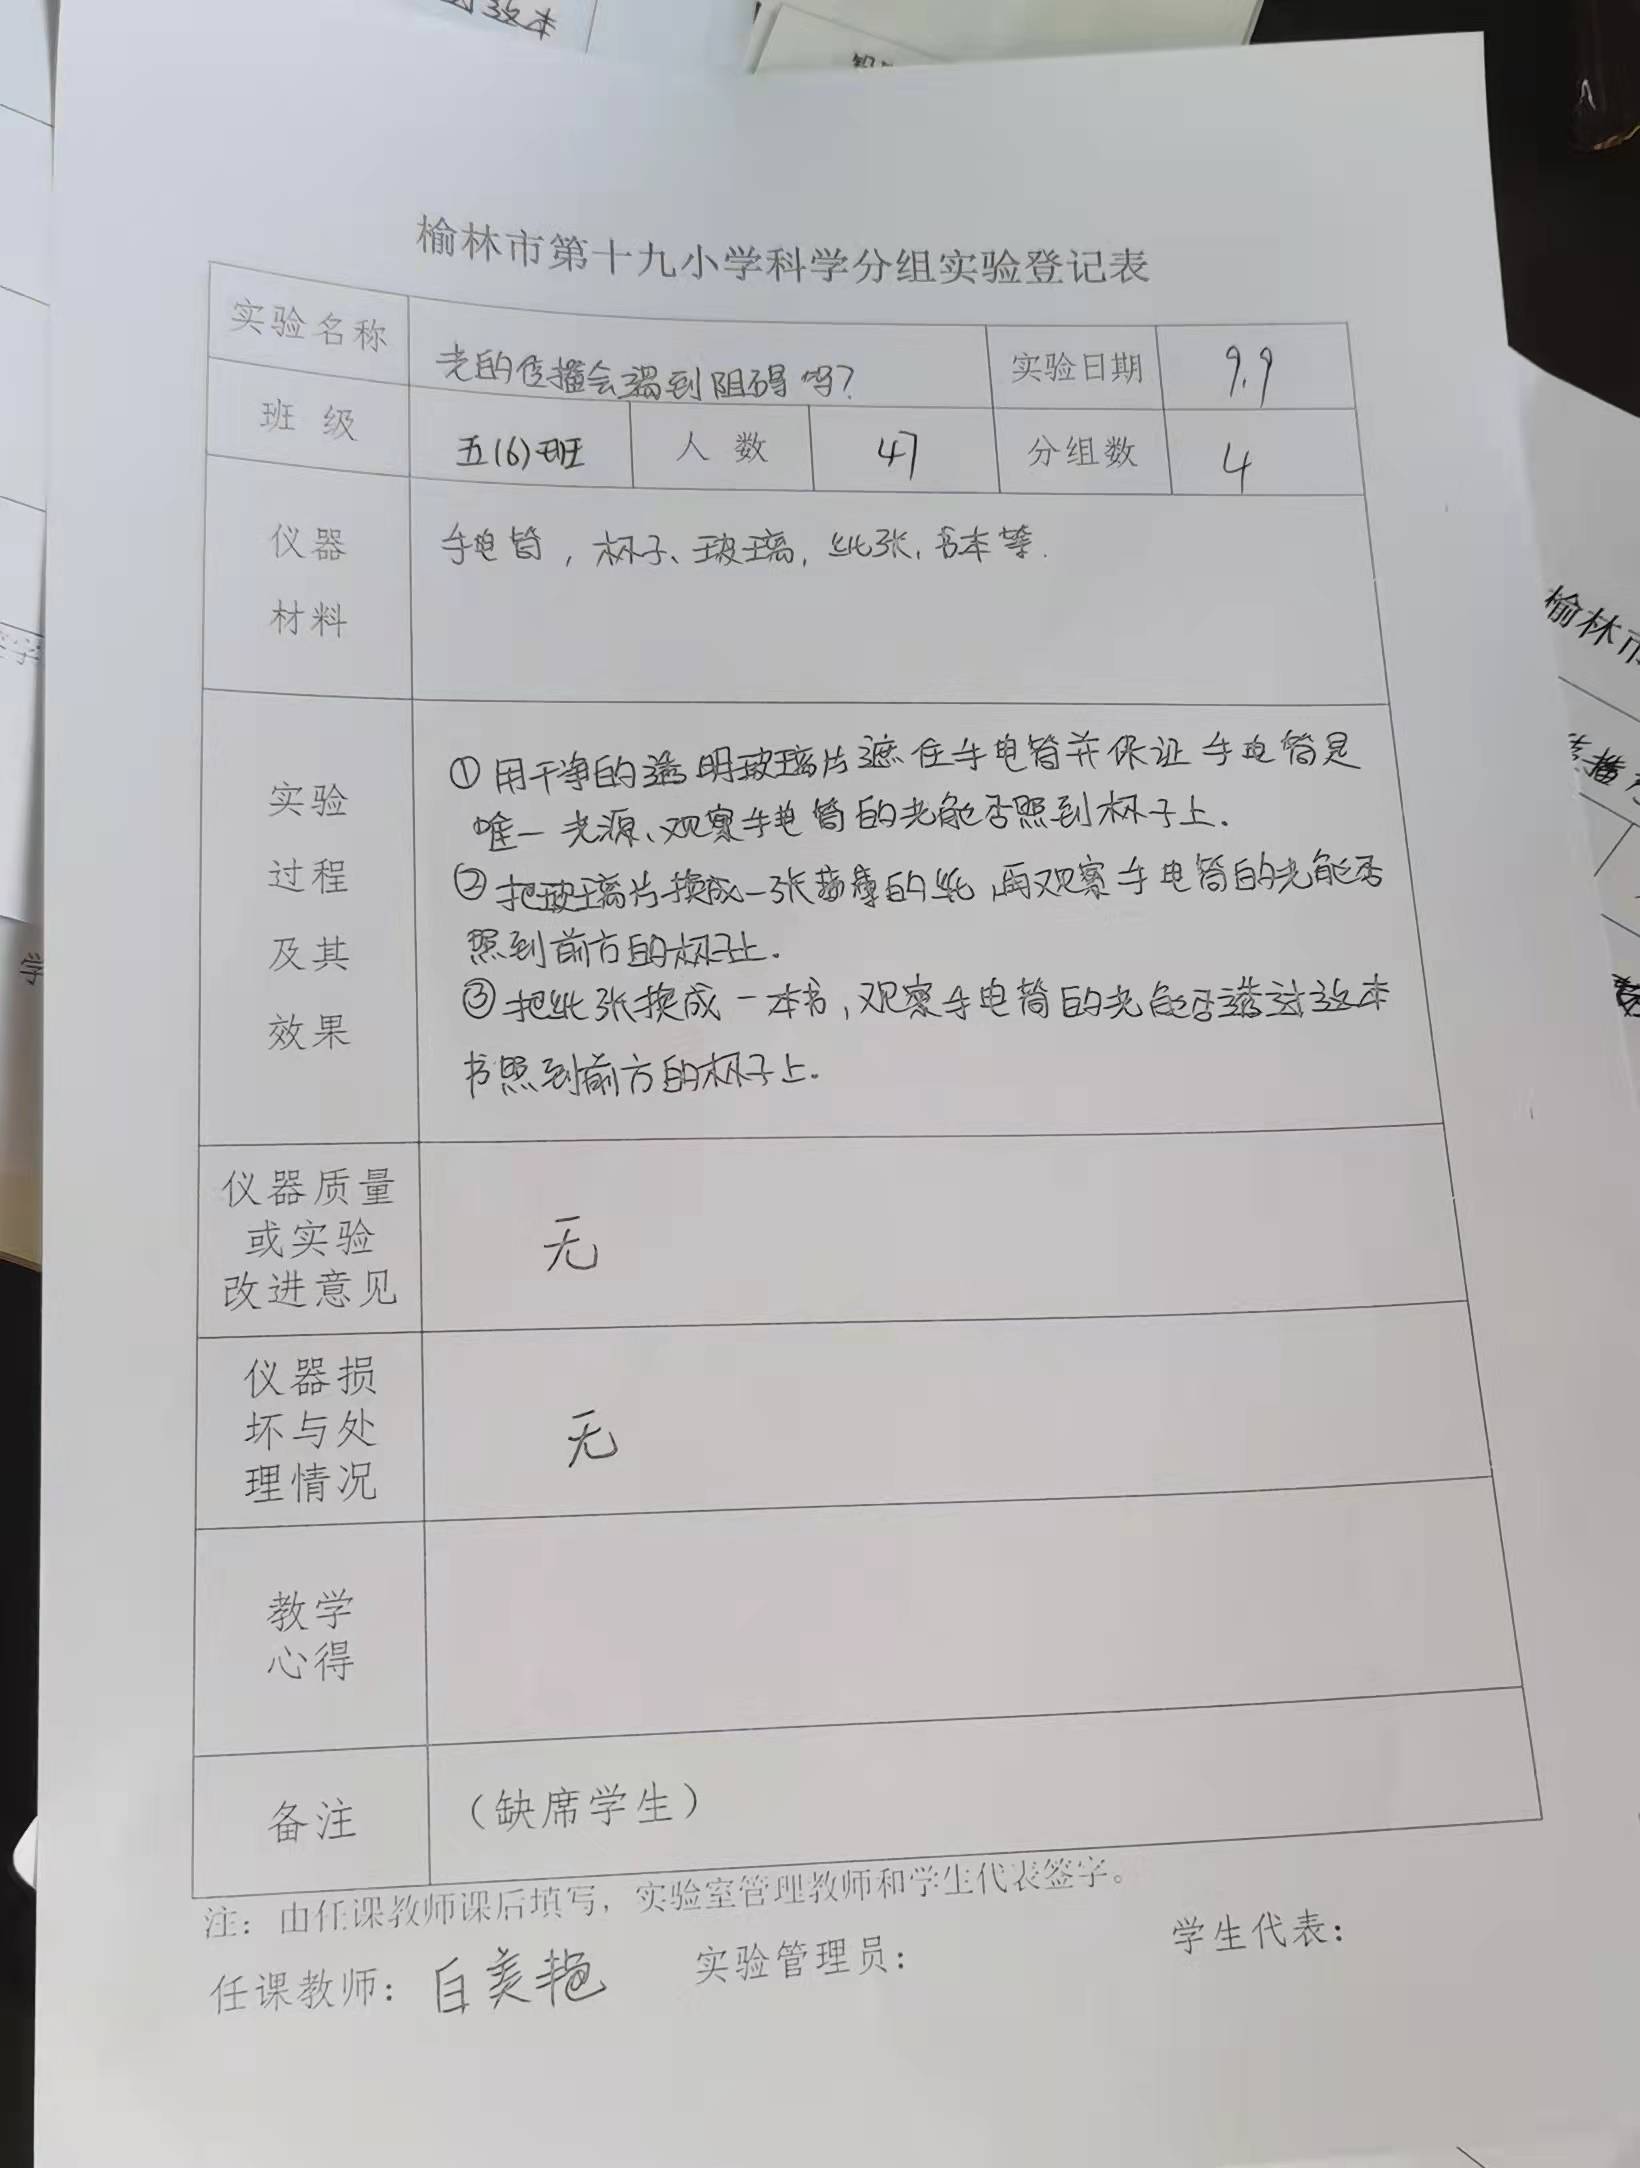 过这本
榆林市第十九小学科学分组实验登记表
实验名称 光的传播会遇到阻碍吗? 实验日期 9.9
班 级 五(6)班 人 数 47 分组数 4
仪器 手电筒,杯子、玻璃,纸张,书本等.
材料
实验 ①用干净的透明玻璃片遮住手电筒并保证手电筒是
唯一光源、观察手电筒的光能否照到杯子上.
过程 ②把玻璃片换成一张薄薄的纸,再观察手电筒的光能否
及其 照到前方的杯子上.
③把纸张换成一本书,观察手电筒的光能否透过这本
效果 书照到前方的杯子上.
仪器质量
或实验 无
改进意见
仪器损
坏与处 无
理情况
教学
心得
备注 (缺席学生)
注:由任课教师课后填写,实验室管理教师和学生代表签字。
任课教师: 白美艳 实验管理员: 学生代表:
榆林市
播
学